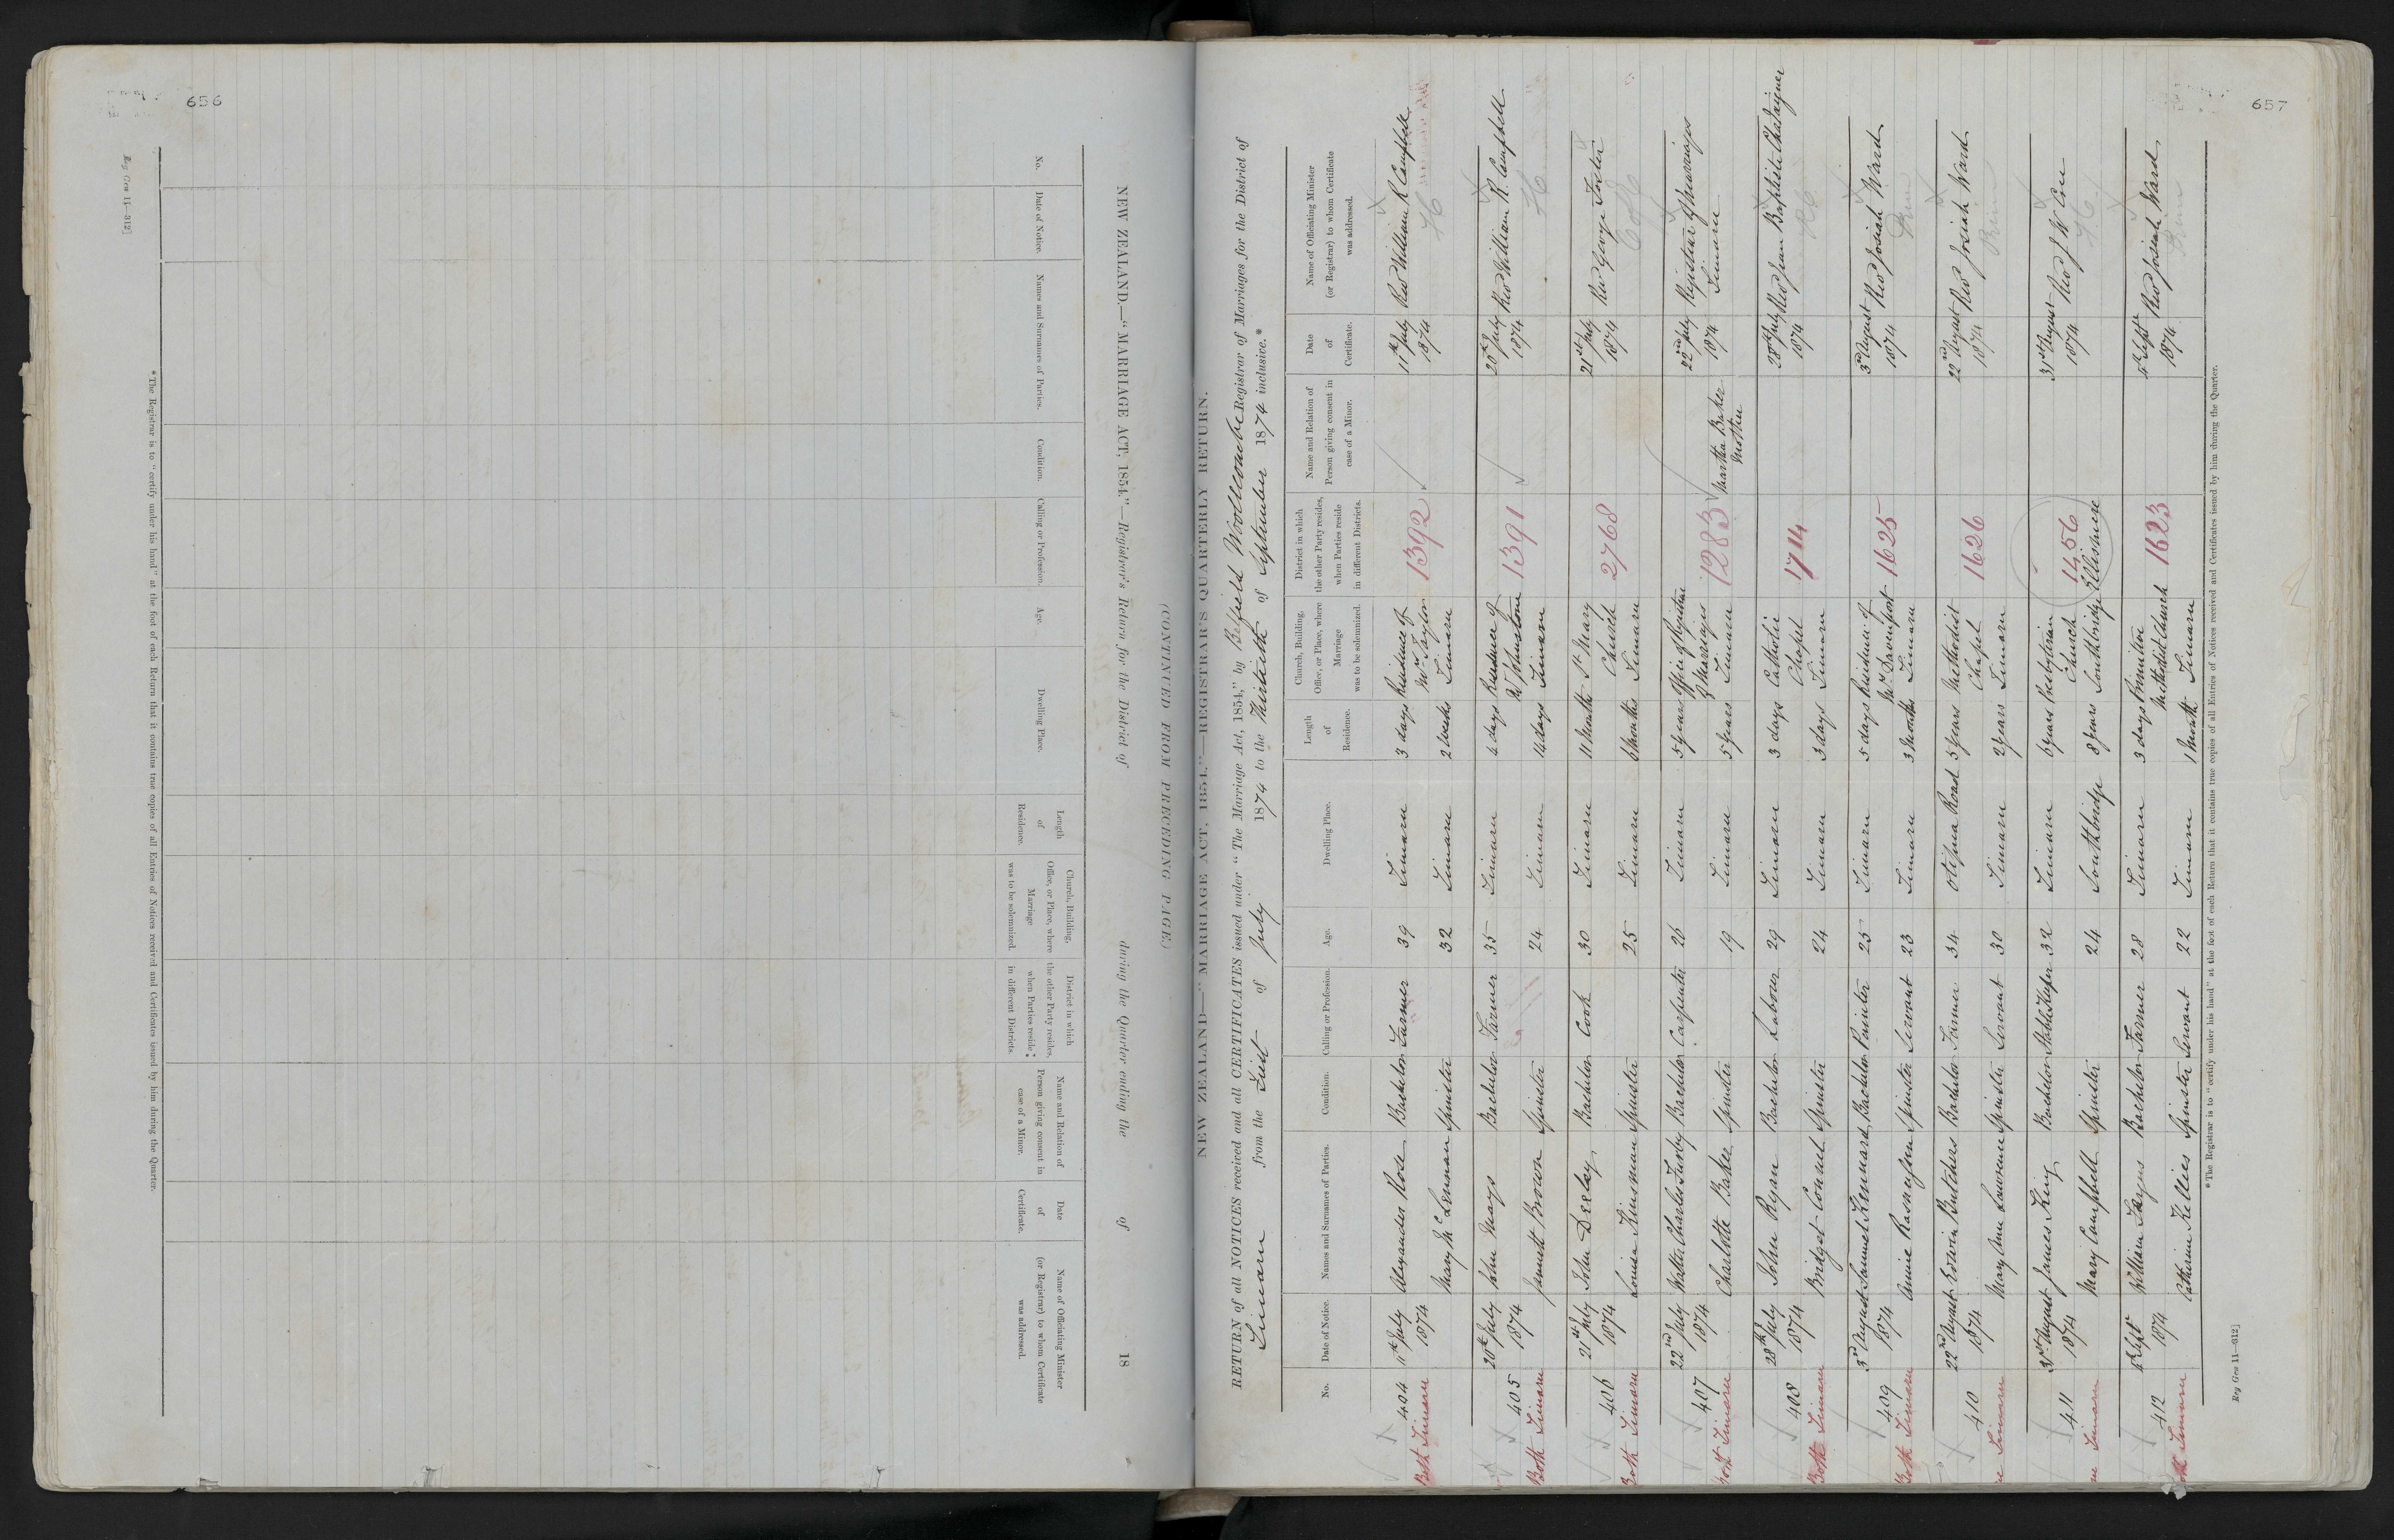 656
Reg Gen 11—312]
NEW ZEALAND.—"MARRIAGE ACT, 1854."—Registrar's Return for the District of during the Quarter ending the of 18
(CONTINUED FROM PRECEDING PAGE.)
No. Date of Notice. Names and Surnames of Parties. Condition. Calling or Profession. Age. Dwelling Place. Length of Residence. Church, Building, Office, or Place, where Marriage was to be solemnized. District in which the other Party resides, when Parties reside in different Districts. Name and Relation of Person giving consent in case of a Minor. Date of Certificate. Name of Officiating Minister (or Registrar) to whom Certificate was addressed.
* The Registrar is to "certify under his hand" at the foot of each Return that it contains true copies of all Entries of Notices received and Certificates issued by him during the Quarter.
657
NEW ZEALAND—"MARRIAGE ACT, 1854."—REGISTRAR'S QUARTERLY RETURN.
RETURN of all NOTICES received and all CERTIFICATES issued under "The Marriage Act, 1854," by Belfield Woollcombe Registrar of Marriages for the District of
Timaru from the First of July 1874 to the Thirtieth of September 1874 inclusive.*
No. Date of Notice. Names and Surnames of Parties. Condition. Calling or Profession. Age. Dwelling Place. Length of Residence. Church, Building, Office, or Place, where Marriage was to be solemnized. District in which the other Party resides, when Parties reside in different Districts. Name and Relation of Person giving consent in case of a Minor. Date of Certificate. Name of Officiating Minister (or Registrar) to whom Certificate was addressed.
404 11th July Alexander Rose Bachelor Farmer 39 Timaru 3 days Residence of 11th July Revd William R Campbell
Both Timaru 1874 Mary McLennan Spinster 32 Timaru 2 weeks Mr Taylor Timaru 1392 1874
405 20th July John Mays Bachelor Farmer 35 Timaru 4 days Residence of 20th July Revd William R. Campbell
Both Timaru 1874 Jannett Brown Spinster 24 Timaru 14 days W Johnstone Timaru 1391 1874
406 21st July John Deeley Bachelor Cook 30 Timaru 11 Months St Mary 21st July Rev George Foster
Both Timaru 1874 Louisa Kinsman Spinster 25 Timaru Months Church Timaru 2768 1874
407 22nd July Walter Charles Bachelor Carpenter 26 Timaru 5 years Office of Registrar 22nd July Registrar of Marriages
Both Timaru 1874 Charlotte Baker Spinster 19 Timaru 5 years of Marriages Timaru 1283 Martha Baker Mother 1874 Timaru
408 28th July John Ryan Bachelor Labour 29 Timaru 3 days Catholic 28th July Revd Jean Baptiste Chataigner
Both Timaru 1874 Bridget Connel Spinster 24 Timaru 3 days Chapel Timaru 1714 1874 RC
409 3rd August Samuel Kennard Bachelor Painter 25 Timaru 5 days Residence of 3rd August Revd Josiah Ward
Both Timaru 1874 Annie Spinster Servant 23 Timaru 3 months Mr Davenport Timaru 1625 1874
410 22nd August Edwin Butchers Bachelor Farmer 34 Otipua Road 5 years Methodist 22nd August Revd Josiah Ward
Timaru 1874 Mary Ann Lawrence Spinster Servant 30 Timaru 2 years Chapel Timaru 1626 1874
411 31st August James King Bachelor Stable Keeper 32 Timaru 6 years Presbyterian 31st August Revd J W
Timaru 1874 Mary Campbell Spinster 24 Southbridge 8 years Church Southbridge 1456 Ellesmere 1874
412 4th Sept William Bachelor Farmer 28 Timaru 3 days Primitive 4th Sept Revd Josiah Ward
Both Timaru 1874 Catherine Kellies Spinster Servant 22 Timaru 1 Month Methodist Church Timaru 1623 1874
* The Registrar is to "certify under his hand" at the foot of each Return that it contains true copies of all Entries of Notices received and Certificates issued by him during the Quarter.
Reg Gen 11—312]